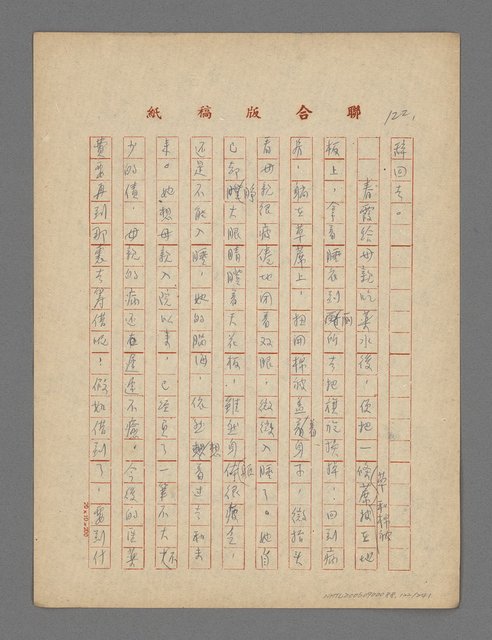 聯合版稿紙
122.
辭回去。
春霞給母親吃藥水後,便把一條草蓆和棉被披在地
板上,拿着睡衣到廁所去把旗袍換掉,回到病
房,躺在草蓆上,扭回棉被蓋着身子,微抬
看母親很疲倦地閉着双眼,微微入睡了。她自
已却睜大眼睛瞪着天花板,雖然身體很疲倦,
还是不能入睡,她的腦海,依然想着过去和未
來。她想母親入院以來,已經負了一筆不大不
少的債,母親的病还在遙遙不癒,今後的住藥
費要再到那裏去籌借呢?假如借到了,要到什
20×10=200